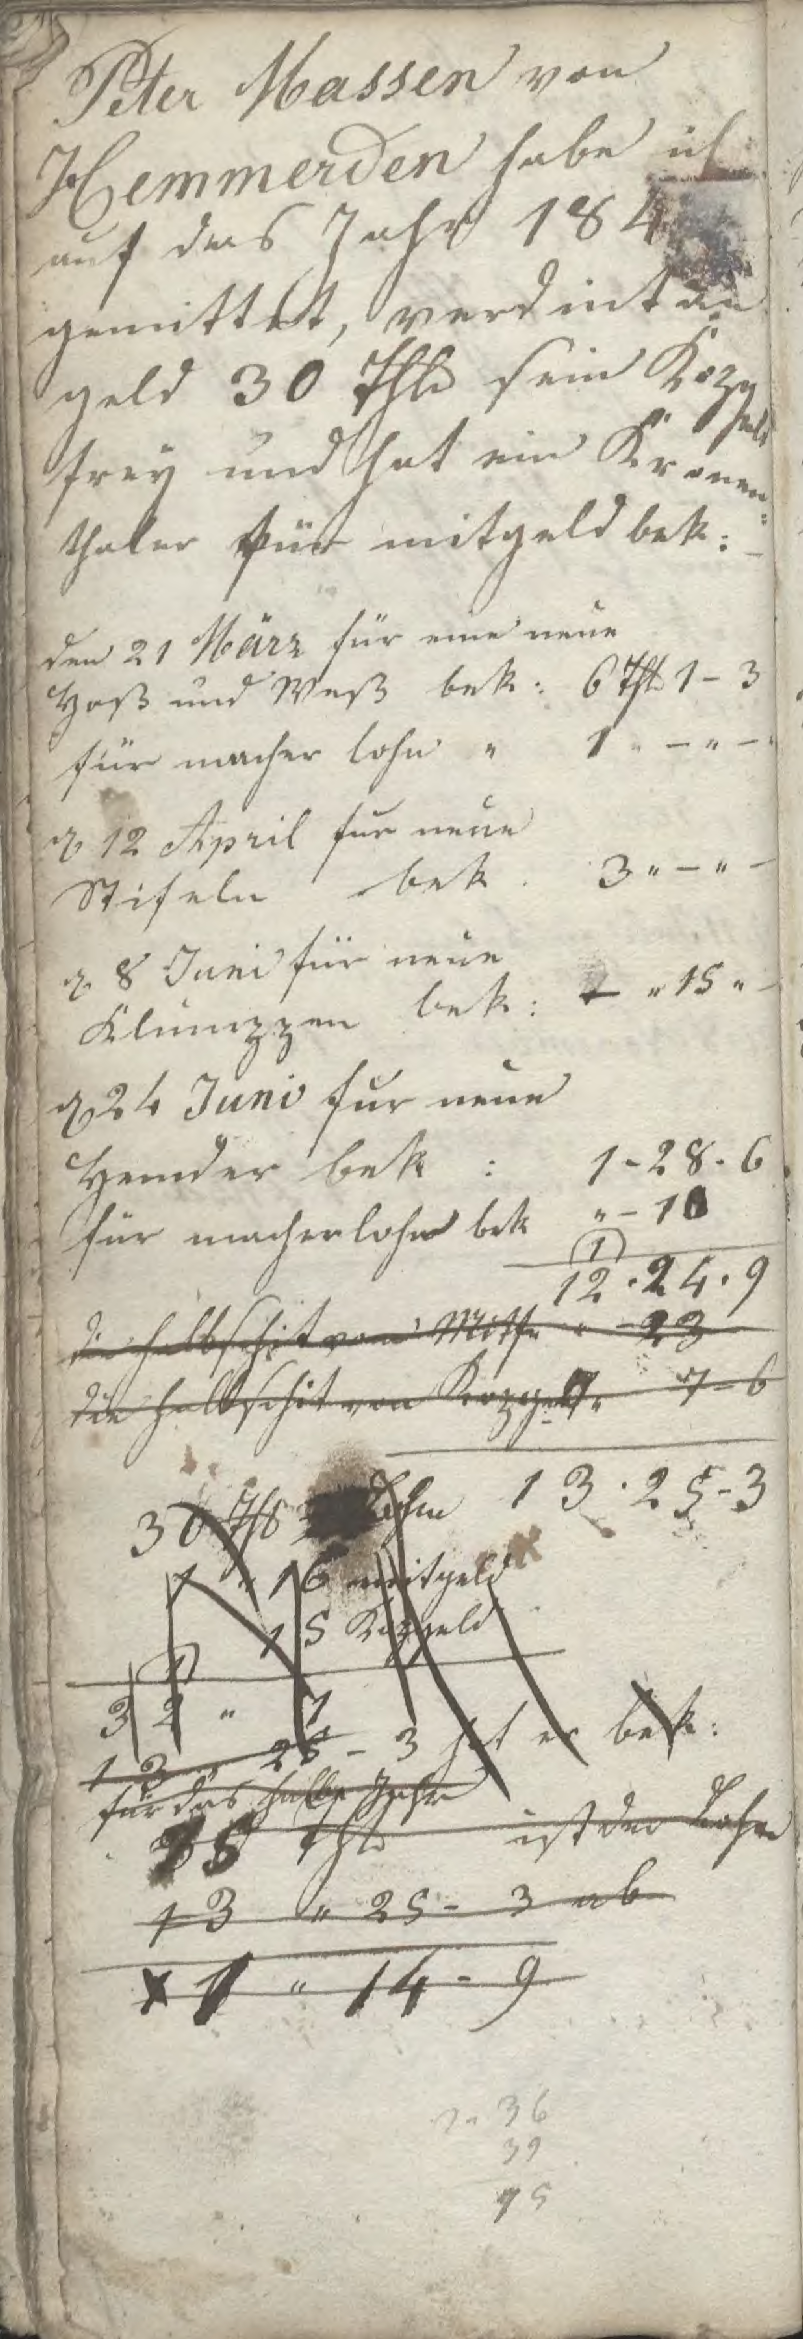 Peter Massen von
Hemmerden habe ich
auf das Jahr 184
gemittet, verdint an
geld 30 Thlr sein Kopp
geld
frey und hat ein Kronen=
thaler für mitgeld bek:
den 21 März für eine neue
Hoß und Weß bek: 6 Thl 1 - 3
für macher lohn " 1 " - " -
d 12 April fur neue
Stifeln bek 3 " - " -
d 8 Juni für neue
Klumppen bek: - " 15 " -
d 24 Juni fur neue
Hemder bek : 1 - 28 - 6
für macherlohn bek " - 10
1
12 . 24 . 9
die halbschit vom Mitg " - 23
die halbschit von Koppgeld " 7 - 6
13 . 25 - 3
30 Thl Lohn
1 " 16 mitgeld
15 Kopgeld
1
32 " 1
13 " 25 - 3 hat er bek:
für das halbe Jahr
15 Thlr ist der Lohn
13 " 25 - 3 ab
1 " 14 - 9
36
39
75